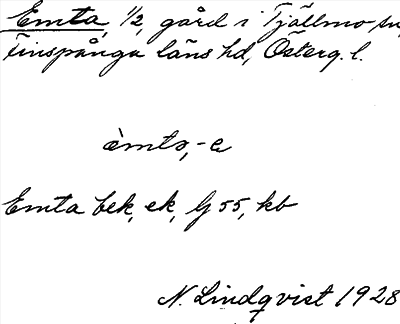 Emta, 1/2, gård i Tjällmo sn,
Finspånga läns hd, Österg. l.
èmtə, -e
Emta bek, ek, G 55, kb
N. Lindqvist 1928